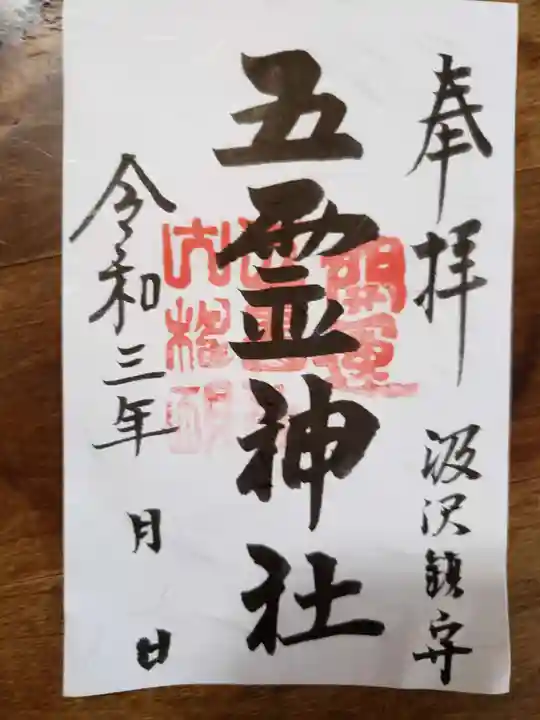 奉拝
汲沢鎮守
五霊神社
開運
令和三年 月 日